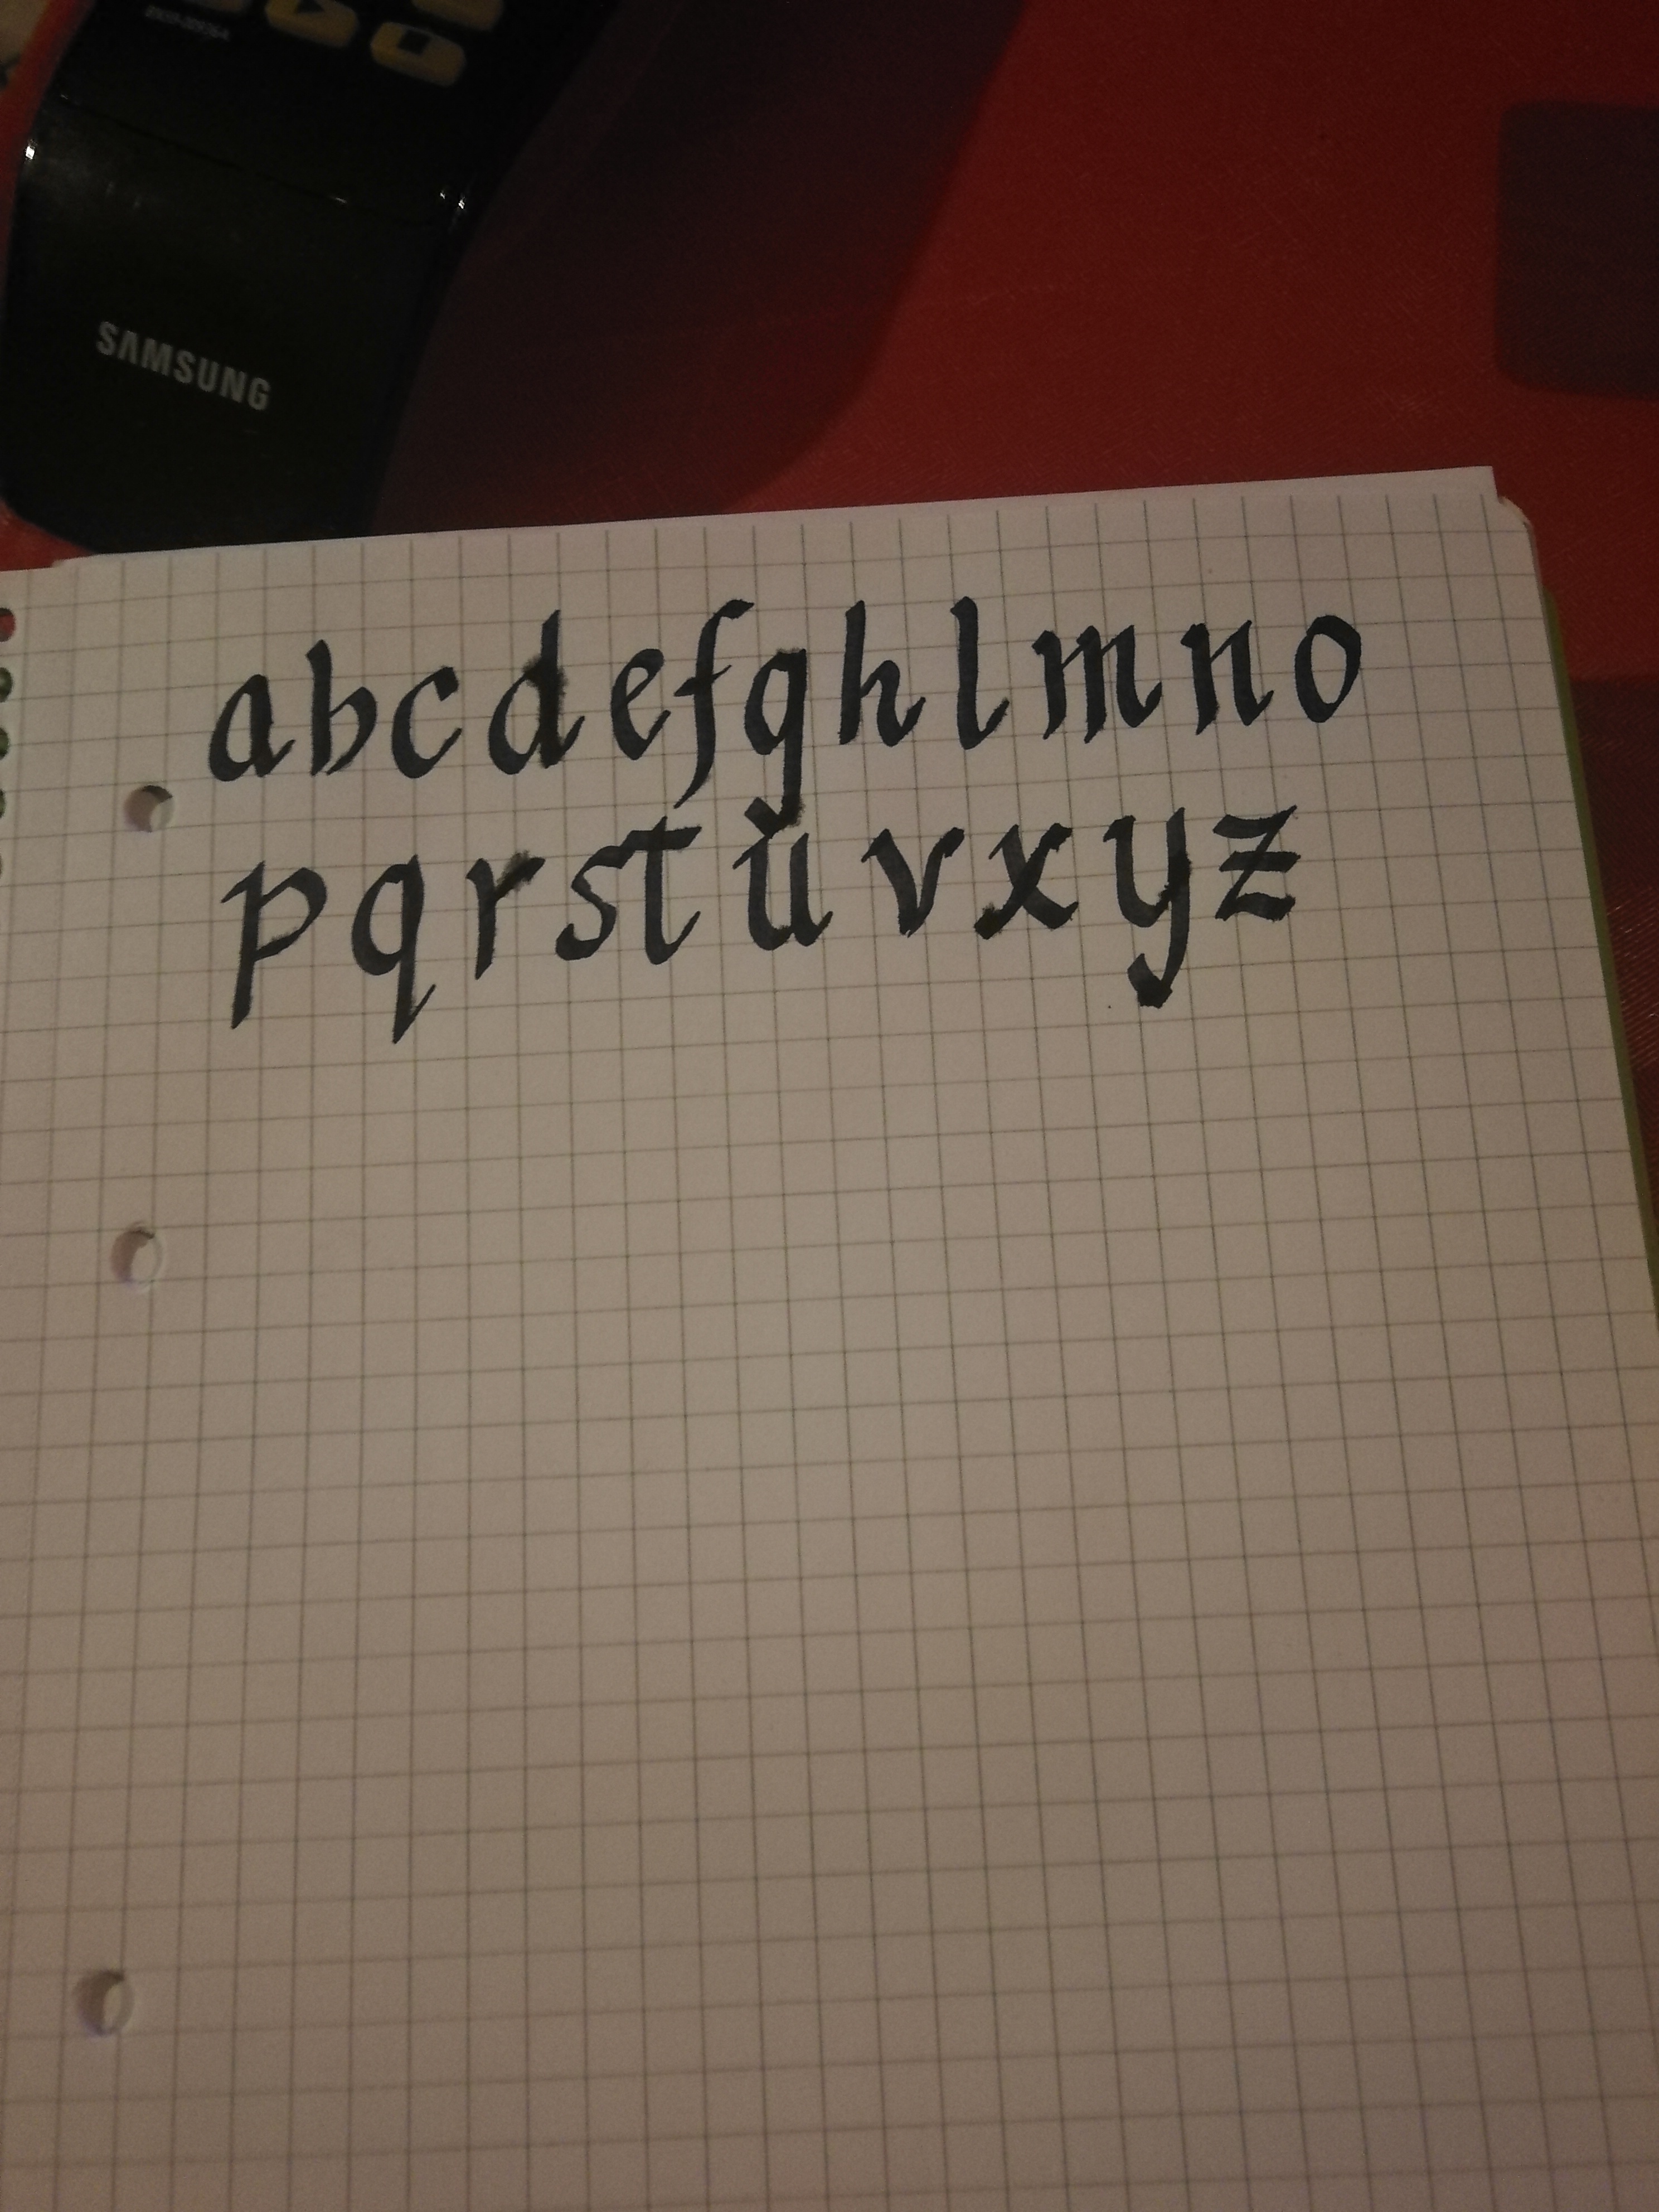 SAMSUNG
abcdefghlmno
pqrstuvxyz